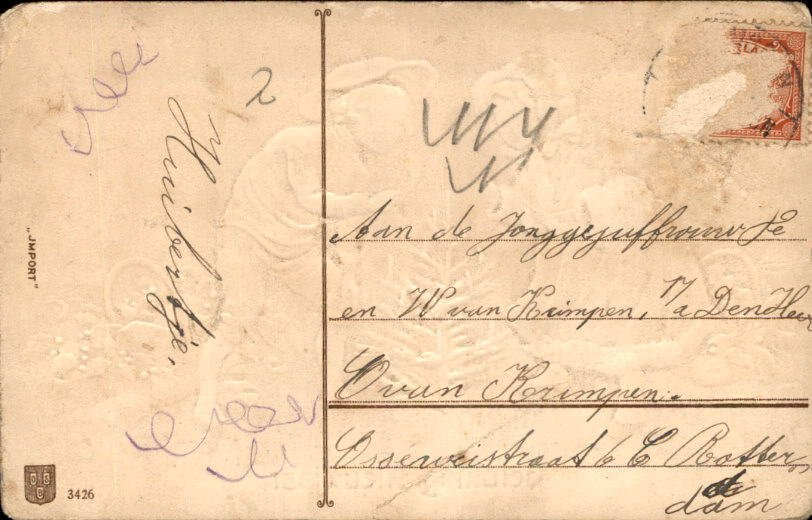 2
Huibertje.
„JMPORT"
3426
Aan de Jonggejuffrouw Je
en W van Krimpen, p/a Den Heer
O van Krimpen.
Osseweistraat 6 C Rotter
dam